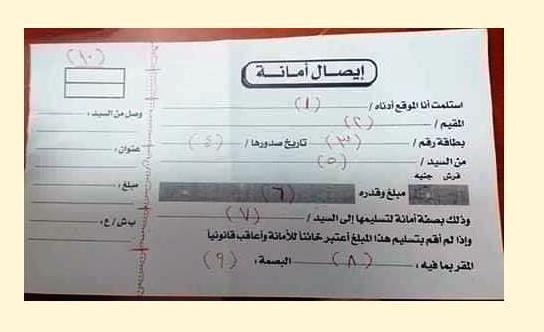 إيصال أمانة
استلمت أنا الموقع أدناه / (١)
المقيم / (٢)
بطاقة رقم / (٣) تاريخ صدورها / (٤)
من السيد / (٥)
قرش جنيه
مبلغ وقدره (٦)
وذلك بصفة أمانة لتسليمها إلى السيد / (٧)
وإذا لم أقم بتسليم هذا المبلغ أعتبر خائناً للأمانة وأعاقب قانونياً
المقر بما فيه : (٨) البصمة : (٩)
(١٠)
وصل من السيد :
عنوان :
مبلغ :
ب ش / ع :